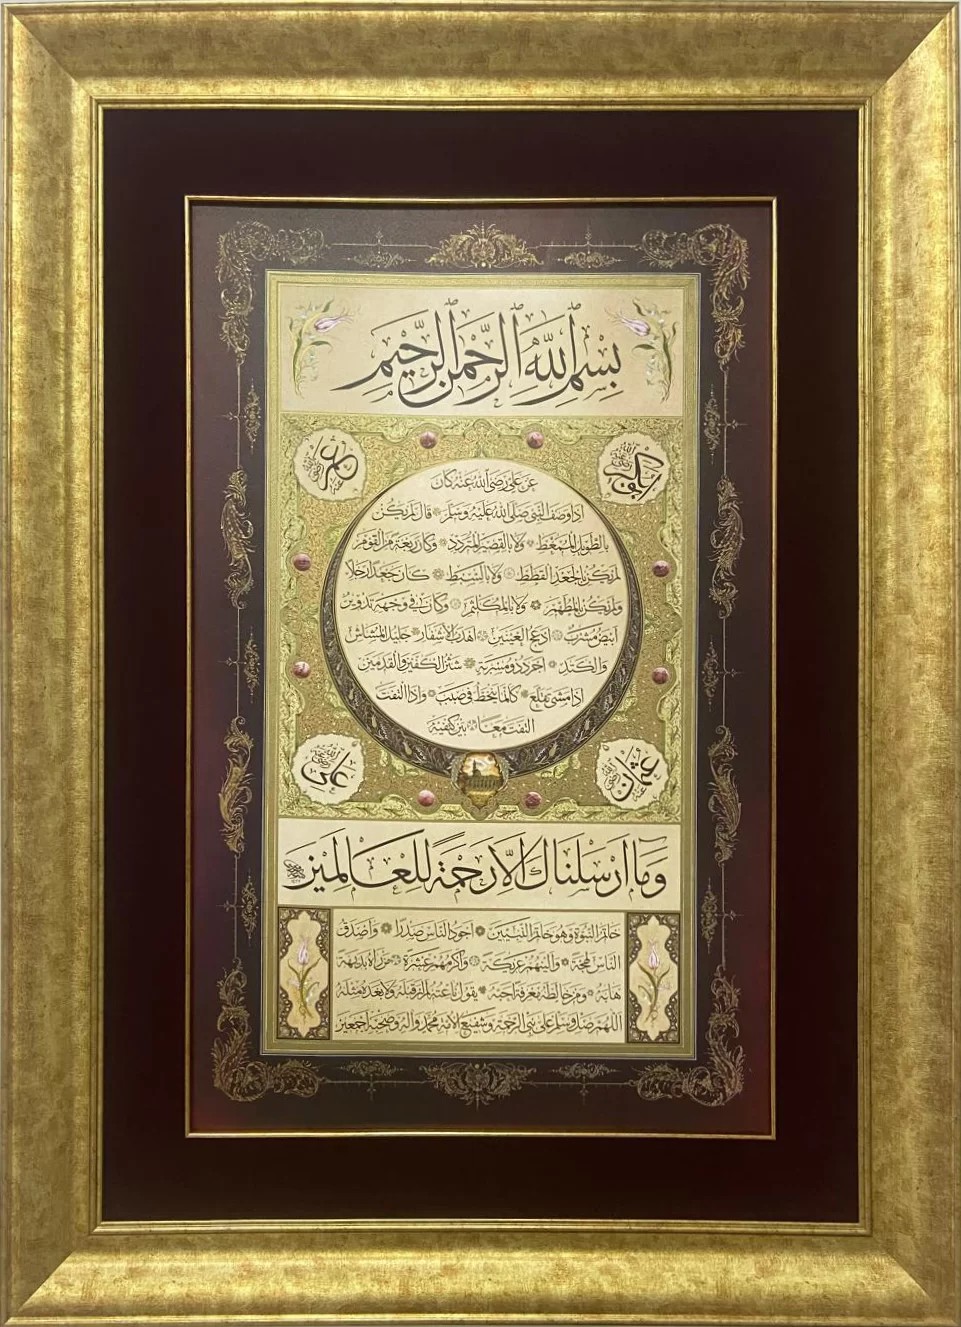 بِسْمِ اللهِ الرَّحْمٰنِ الرَّحِيمِ
ابوبكر رضي الله عنه
عمر رضي الله عنه
عن علي رضي الله عنه كان
اذا وصف النبي صلى الله عليه وسلم قال لم يكن
بالطويل الممغط ولا بالقصير المتردد وكان ربعة من القوم
لم يكن بالجعد القطط ولا بالسبط كان جعدا رجلا
ولم يكن بالمطهم ولا بالمكلثم وكان في وجهه تدوير
ابيض مشرب ادعج العينين اهدب الاشفار جليل المشاش
والكتد اجرد ذو مسربة شثن الكفين والقدمين
اذا مشى تقلع كانما ينحط في صبب واذا التفت
التفت معا بين كتفيه
عثمان رضي الله عنه
علي رضي الله عنه
وما ارسلناك الا رحمة للعالمين
خاتم النبوة وهو خاتم النبيين اجود الناس صدرا واصدق
الناس لهجة والينهم عريكة واكرمهم عشرة من راه بديهة
هابه ومن خالطه معرفة احبه يقول ناعته لم ار قبله ولا بعده مثله
اللهم صل وسلم على نبي الرحمة وشفيع الامة محمد واله وصحبه اجمعين